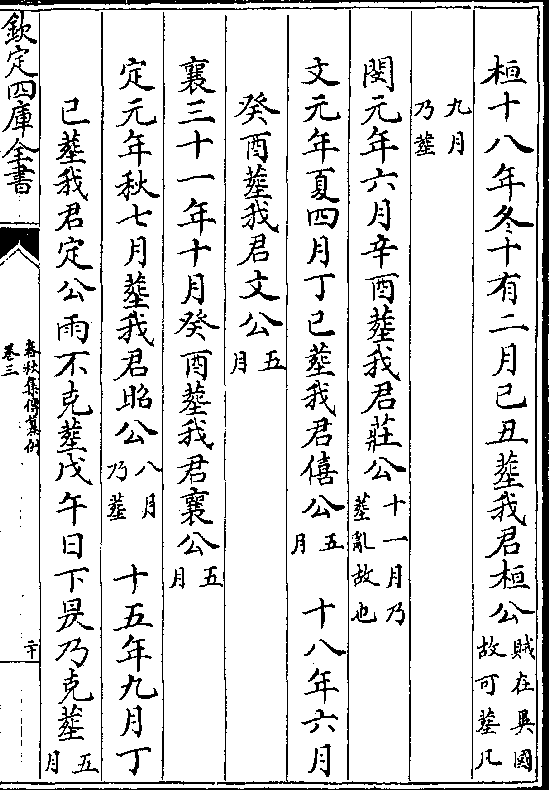 桓十八年冬十有二月己丑葬我君桓公賊在異國故可葬凡
九月乃葬
閔元年六月辛酉葬我君莊公十一月乃葬亂故也
文元年夏四月丁巳葬我君僖公五月 十八年六月
癸酉葬我君文公五月
襄三十一年十月癸酉葬我君襄公五月
定元年秋七月葬我君昭公八月乃葬 十五年九月丁
巳葬我君定公雨不克葬戊午日下昃乃克葬五月
欽定四庫全書
春秋集傳纂例
卷三
二十